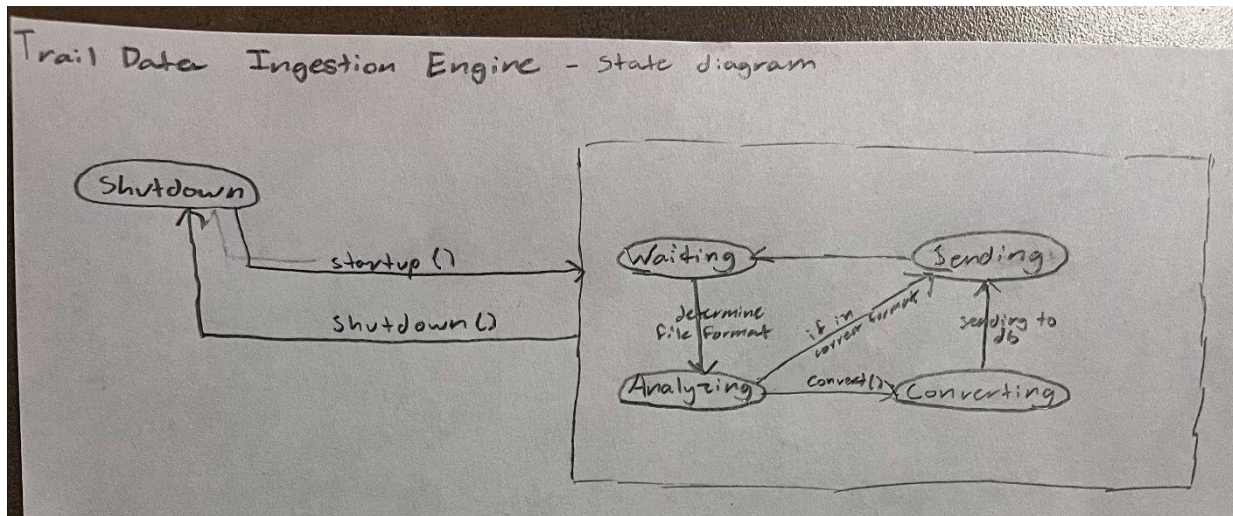 Trail Data Ingestion Engine - State diagram
Shutdown
startup ()
Shutdown ()
Waiting
Sending
determine
file format
if in
correct format
sending to
db
Analyzing
convert()
Converting